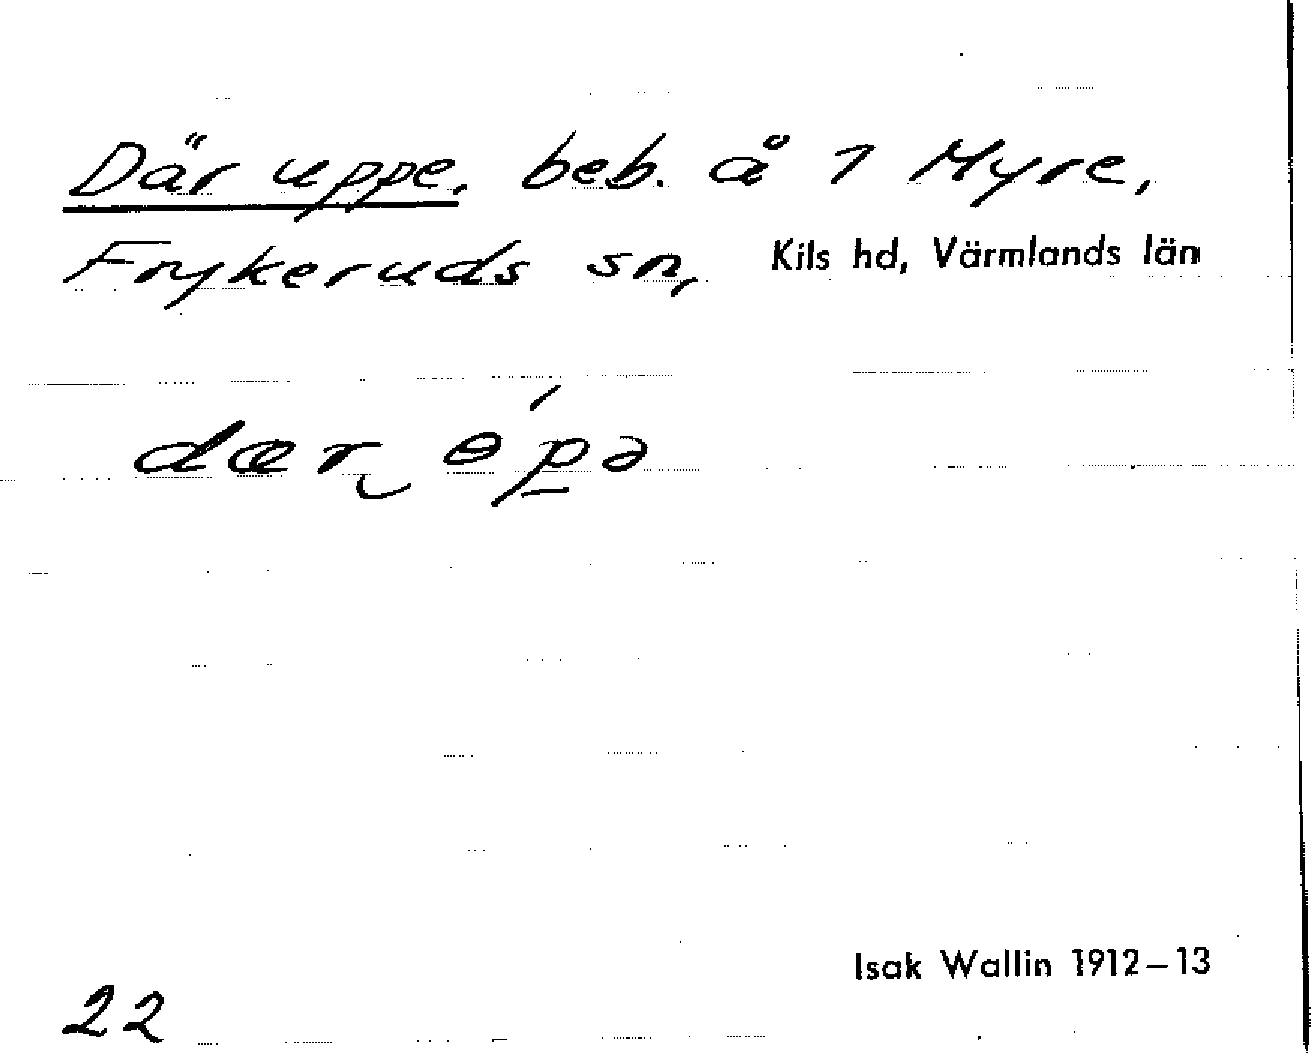 Där uppe, beb. å 1 Myre,
Frykeruds sn, Kils hd, Värmlands län
dær ɵ́pə
Isak Wallin 1912–13
22